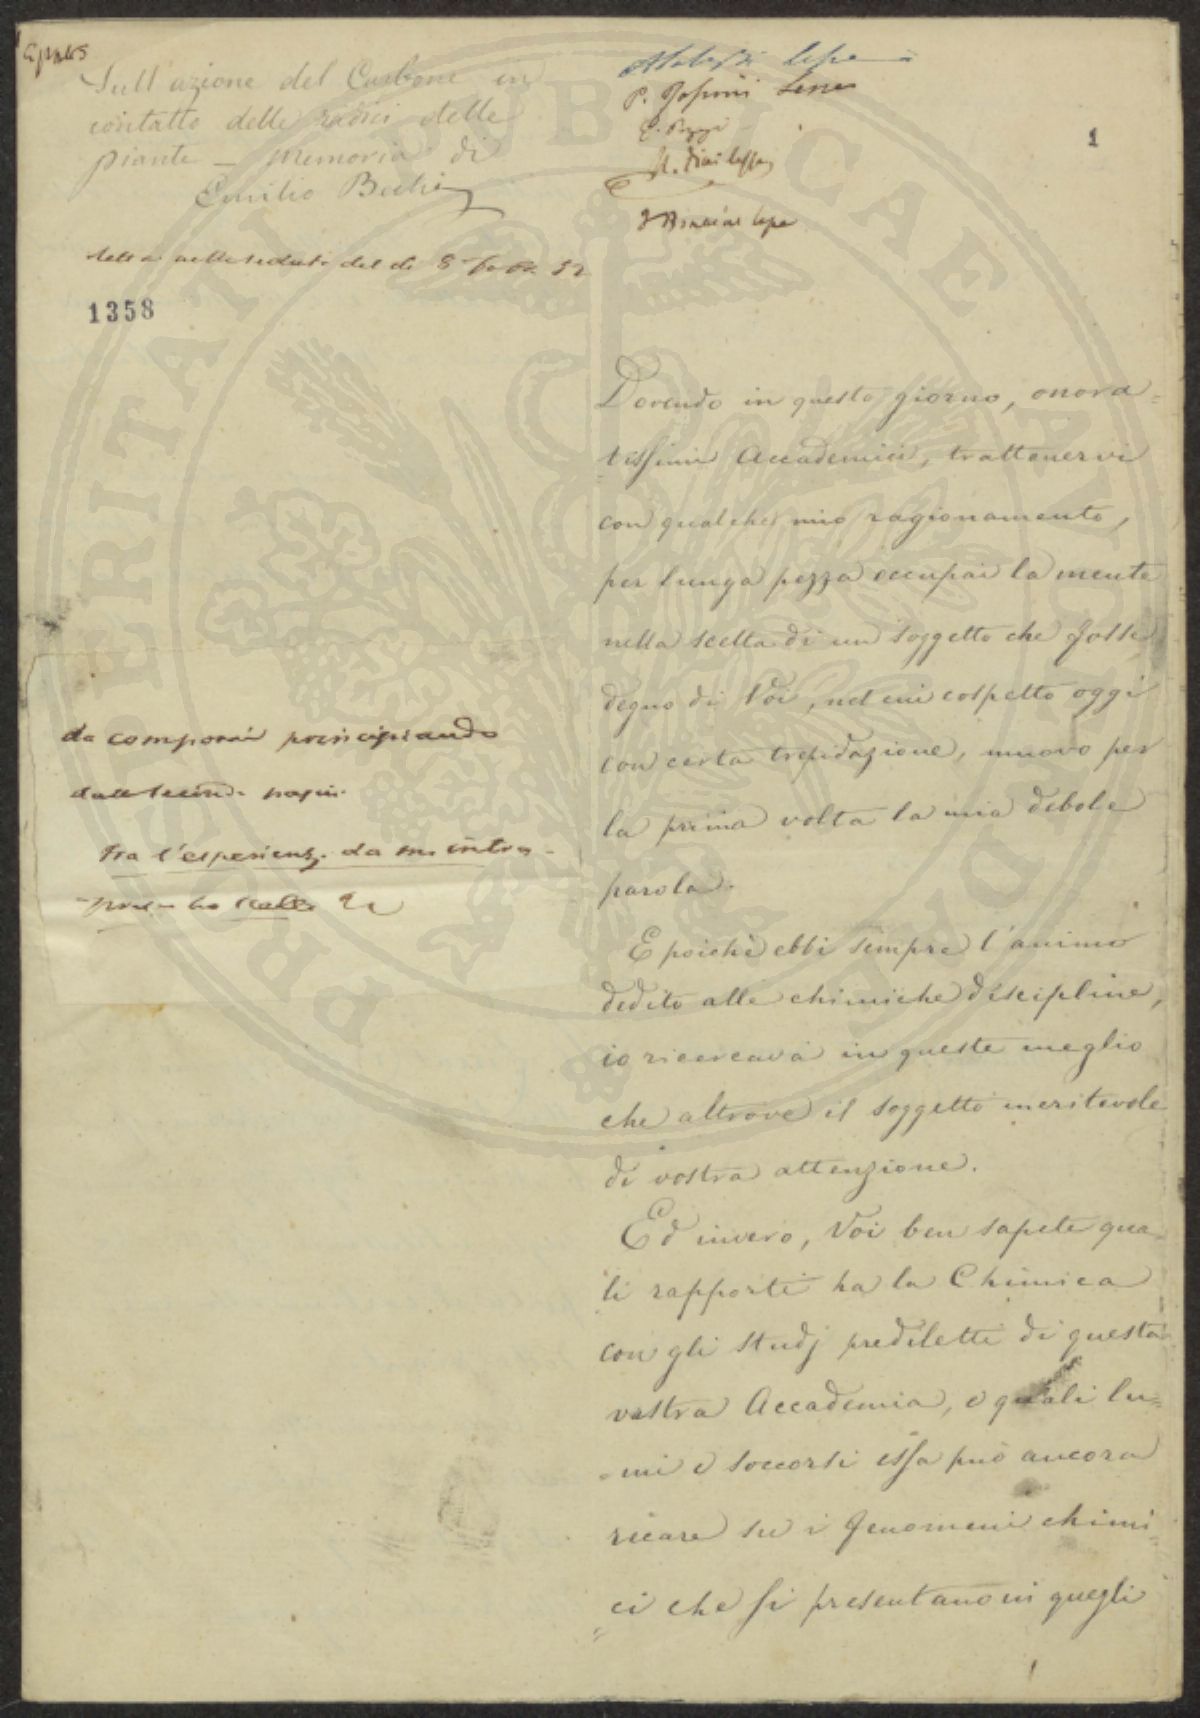 Sull'azione del Carbone in
contatto delle radici delle
piante — Memoria di
Emilio Bechi
letta nella seduta del dì 8 52
1358
lesse
P. lesse
lesse
1
Dovendo in questo giorno, onora=
tissimi Accademici, trattenervi
con qualche mio ragionamento,
per lunga pezza occupai la mente
nella scelta di un soggetto che fosse
degno di Voi, nel cui cospetto oggi
con certa trepidazione, muovo per
la prima volta la mia debole
parola.
E poichè ebbi sempre l'animo
dedito alle chimiche discipline,
io ricercava in queste meglio
che altrove il soggetto meritevole
di vostra attenzione.
Ed invero, Voi ben sapete qua=
li rapporti ha la Chimica
con gli studj prediletti di questa
vostra Accademia, e quali lu=
=mi e soccorsi essa può ancora
recare su i fenomeni chimi=
=ci che si presentano in quegli
da comporsi principiando
dalla seconda pagina
Tra l'esperienze da me intra=
prese ho
PROSPERITATI PUBLICAE AUGENDAE